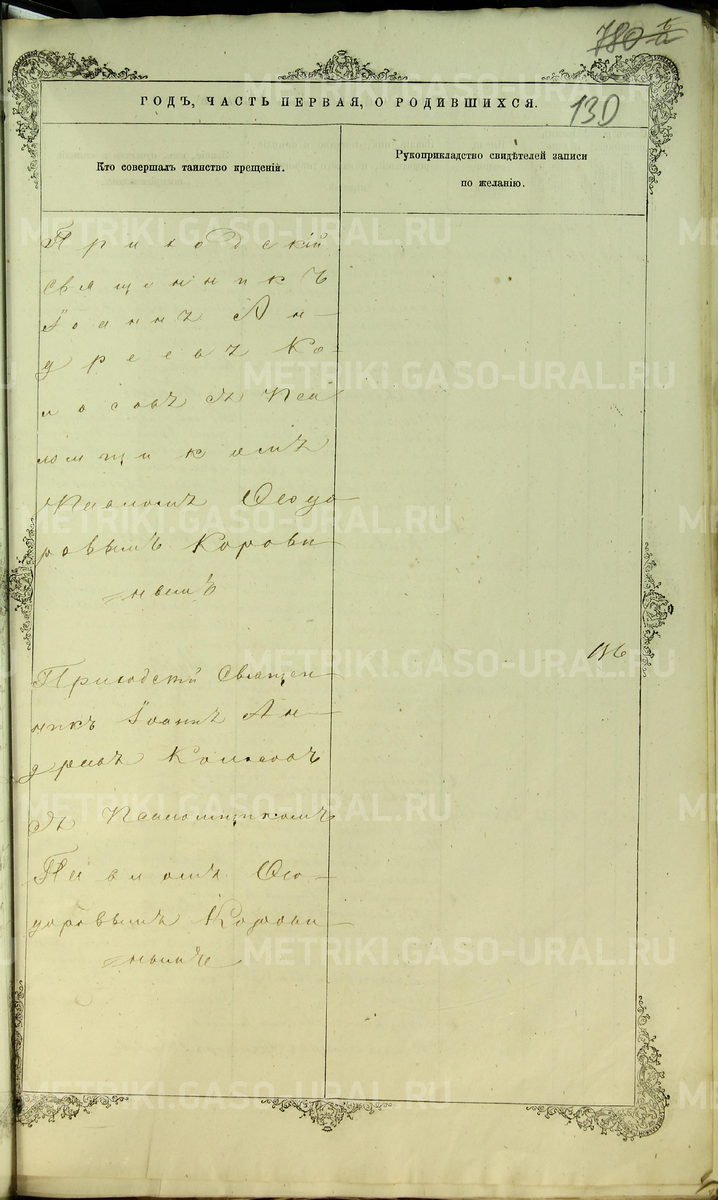 130
ГОДЪ, ЧАСТЬ ПЕРВАЯ, О РОДИВШИХСЯ.
Кто совершалъ таинство крещенія.
Рукоприкладство свидѣтелей записи
по желанію.
Приходскій
священникъ
Іоаннъ Ан-
дреевъ Ко-
лосовъ съ Пса
ломщикомъ
Павломъ Ѳедо
ровымъ Корови
нымъ
Приходскій Священ-
никъ Іоаннъ Ан-
дреевъ Колосовъ
съ Псаломщикомъ
Павломъ Ѳео-
доровымъ Корови-
нымъ
METRIKI.GASO-URAL.RU